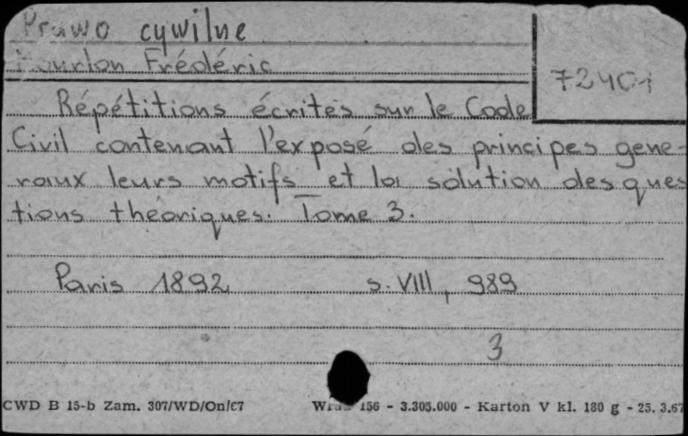 Prawo cywilne
Mourlon Frédéric
72401
Répétitions écrites sur le Code
Civil contenant l'exposé des principes gene-
raux leurs motifs et la solution des ques
tions théoriques. Tome 3.
Paris 1892 s. VIII, 989
3
CWD B 15-b Zam. 307/WD/On/67 156 - 3.305.000 - Karton V kl. 180 g - 25. 3.67